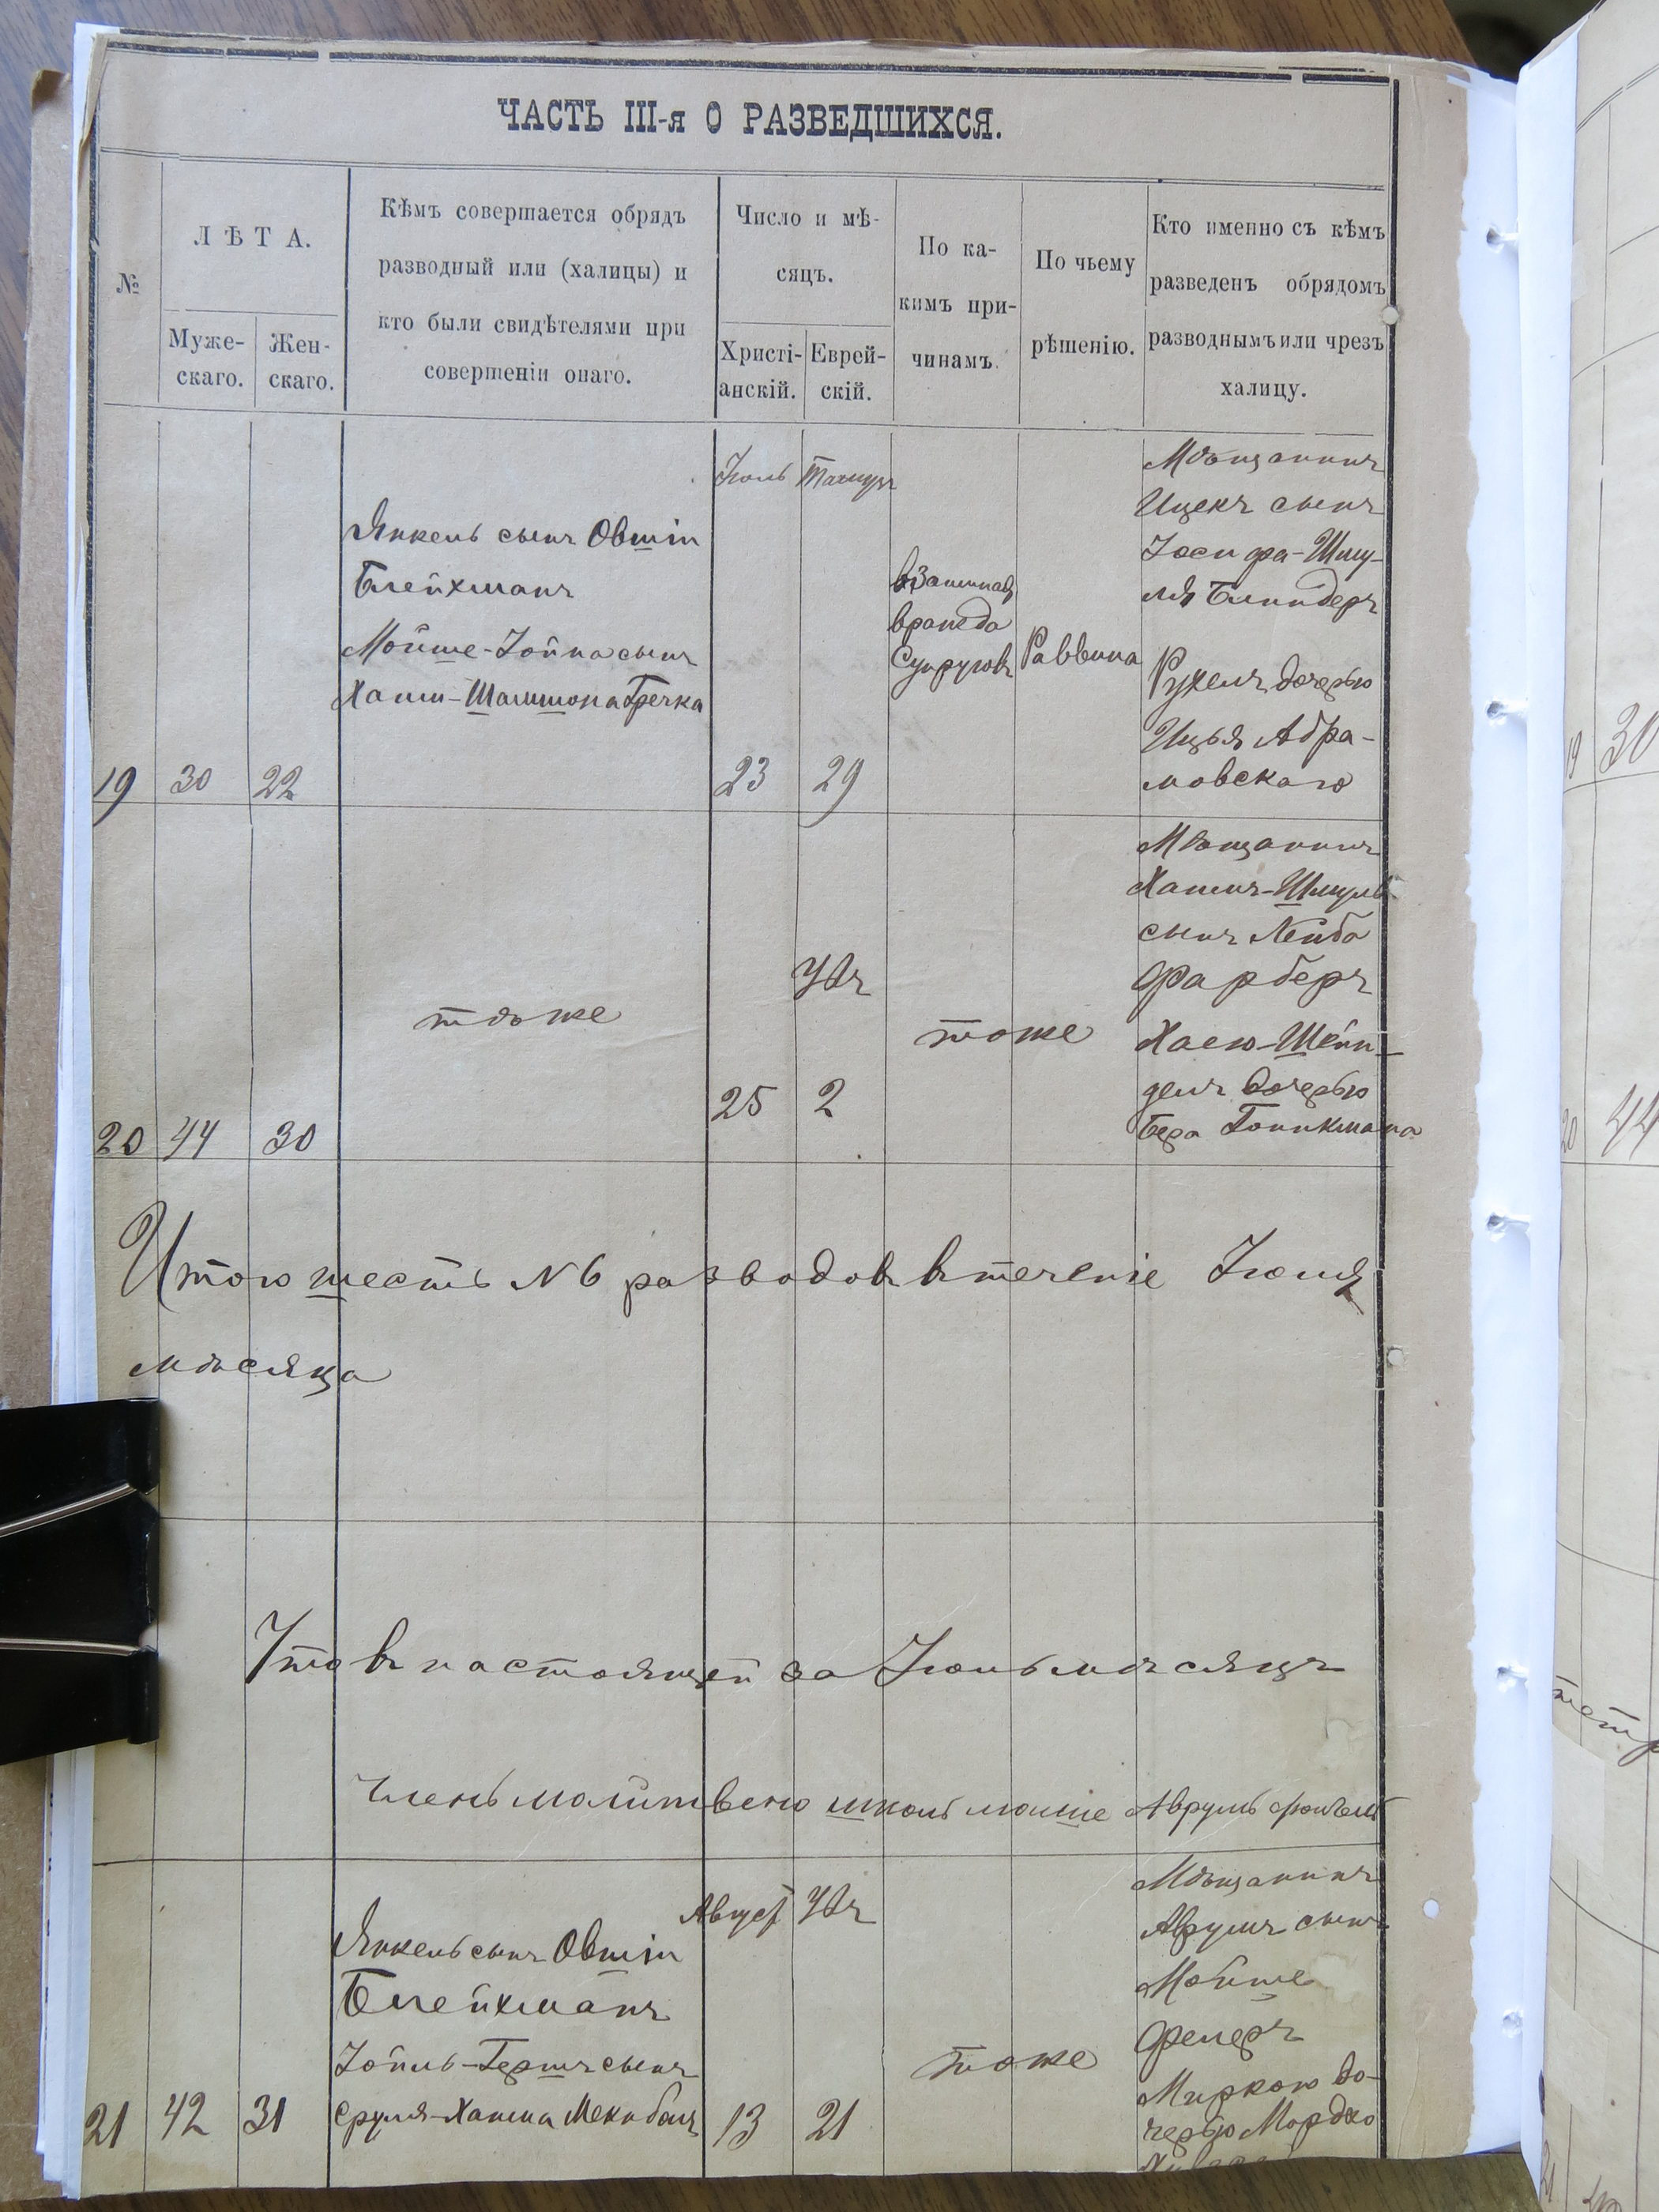 ЧАСТЬ III-я О РАЗВЕДШИХСЯ.
№
ЛѢТА.
Муже-
скаго.
Жен-
скаго.
Кѣмъ совершается обрядъ
разводный или (халицы) и
кто были свидѣтелями при
совершеніи онаго.
Число и мѣ-
сяцъ.
Христі-
анскій.
Еврей-
скій.
По ка-
кимъ при-
чинамъ.
По чьему
рѣшенію.
Кто именно съ кѣмъ
разведенъ обрядомъ
разводнымъ или чрезъ
халицу.
19
30
22
Янкель сынъ Овшіи
Блейхманъ
Мойше-Іойна сынъ
Хаим-Шамшона Гречка
Іюль
23
Тамузъ
29
взаимная
вражда
Супруговъ
Раввина
Мѣщанинъ
Ицекъ сынъ
Іосифа-Шму-
ля Блиндеръ
Рухель дочерью
Ицья Абра-
мовскаго
20
44
30
тоже
25
Увъ
2
тоже
Мѣщанинъ
Хаимъ-Шмуль
сынъ Лейба
Фарберъ
Хаею-Шейн-
дель дочерью
Бера Гоникмана
Итого шесть N 6 разводовъ втеченіе Іюля
мѣсяца
Что въ настоящей за Іюль мѣсяцъ
Членъ молитвено школъ мошше Аврумъ
21
42
31
Янкель сынъ Овшіи
Блейхманъ
Іойль-Гершъ сынъ
Сруля-Хаима
Август
13
Увъ
21
тоже
Мѣщанинъ
Аврумъ сынъ
Мойше
Фелеръ
Миркою до-
черью Мордко
19
30
20
44
21